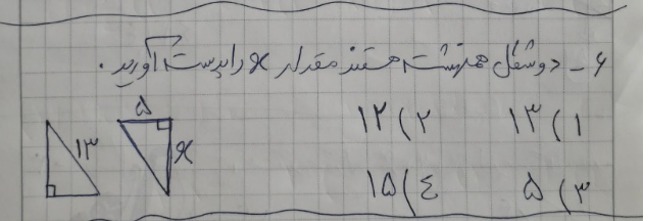 ۶ - دو شکل همنهشت هستند مقدار x را بدست آورید .
۱) ۱۳ ۲) ۱۲
۳) ۵ ۴) ۱۵
۵
۱۳
x